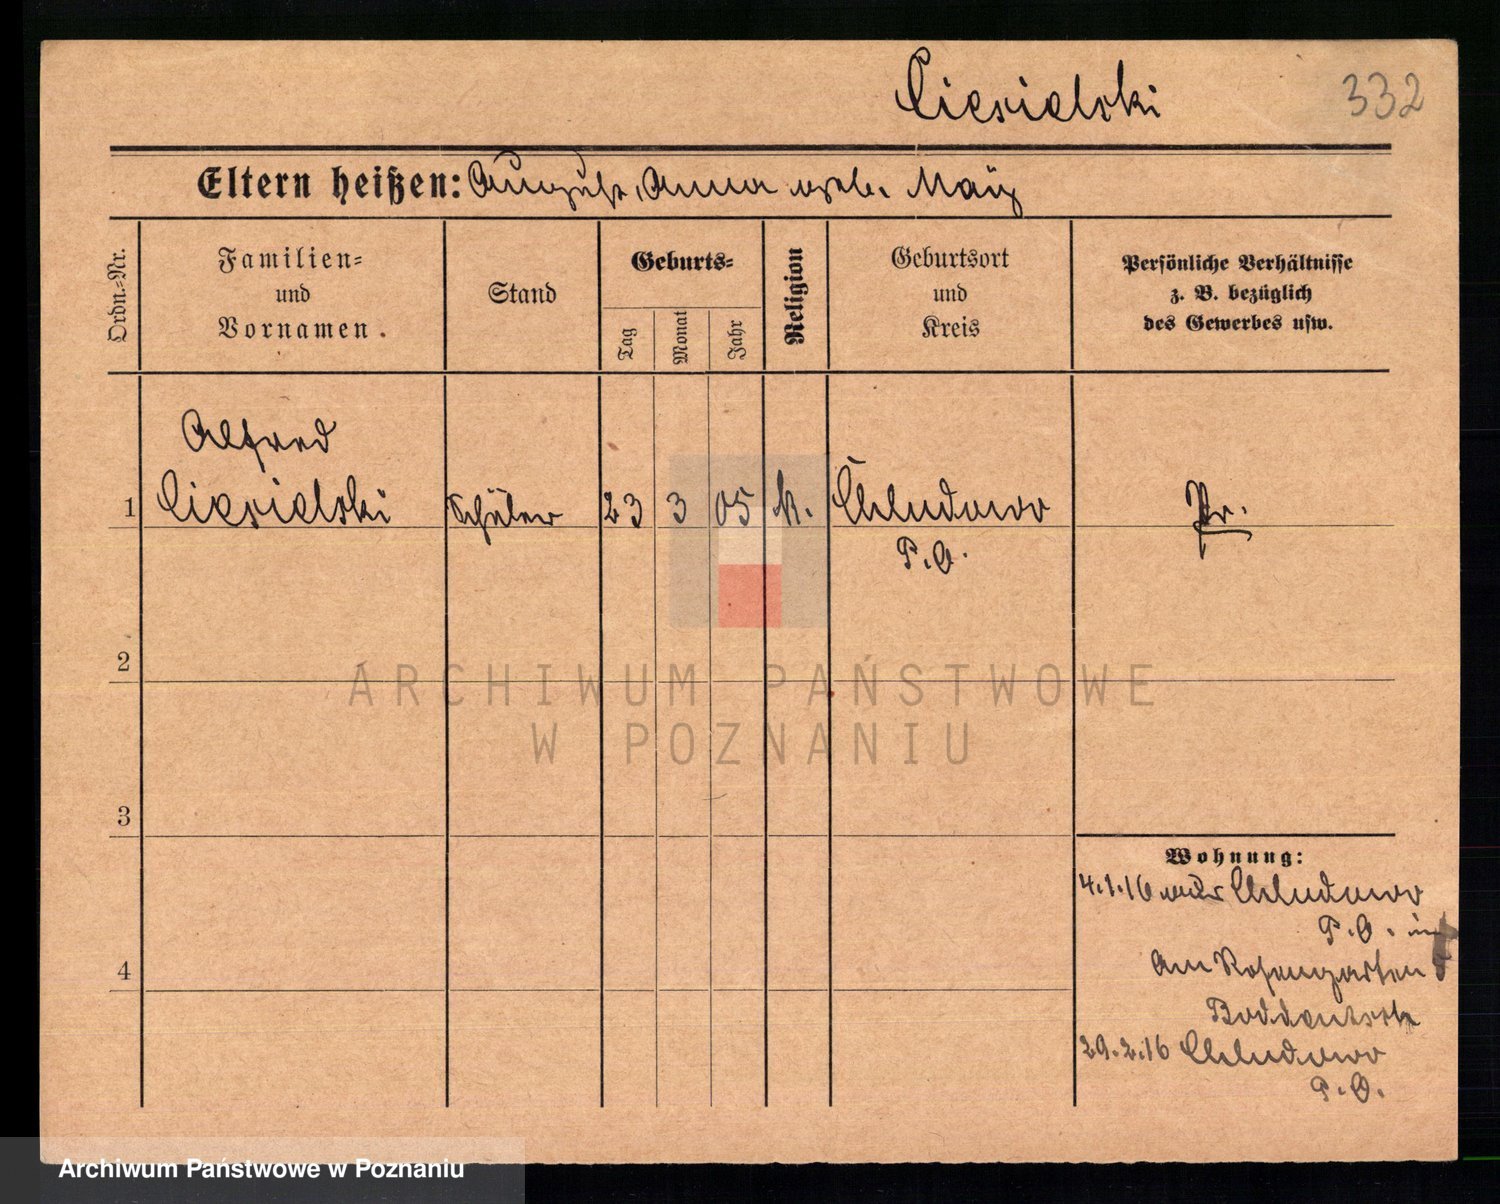 Ciesielski
332
Eltern heißen: August, Anna geb. May
Ordn.-Nr.
Familien-
und
Vornamen.
Stand
Geburts-
Tag
Monat
Jahr
Religion
Geburtsort
und
Kreis
Persönliche Verhältnisse
z. B. bezüglich
des Gewerbes usw.
Alfred
1 Ciesielski Schüler 23 3 05 k. Chludowo Pr.
P. O.
2
3
4
Wohnung:
4.1.16 aus Chludowo
P. O. in
Am Rosengarten
29.2.16 Chludowo
P. O.
ARCHIWUM PAŃSTWOWE
W POZNANIU
Archiwum Państwowe w Poznaniu